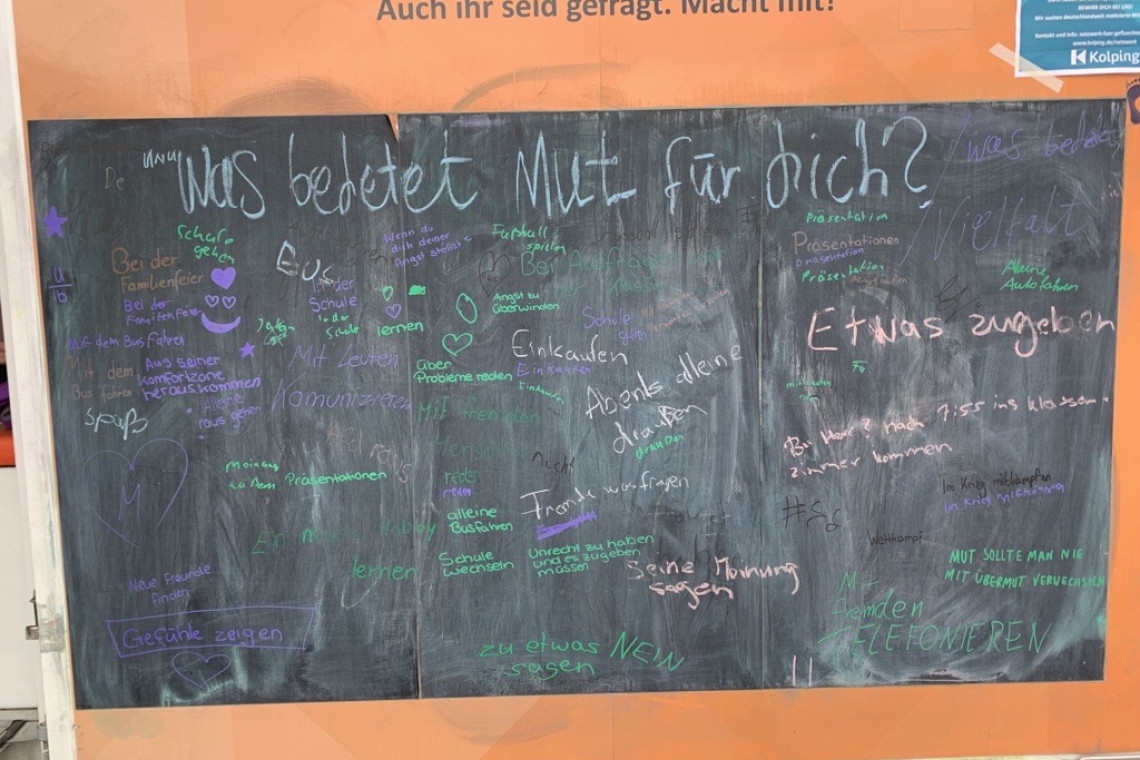 Auch ihr seid gefragt. Macht mit!
BEWIRB DICH BEI UNS
Wir suchen deutschlandweit motivierte
Kontakt und Info:
www.kolping.de/netzwerk
Kolping
Was bedetet Mut für dich?
was bedetet
Vielfalt
De
Schlafen
gehen
Bei der
Familienfeier
Bei der
Familienfeier
Mit dem Bus Fahren
Mit dem
Bus fahren
Aus seiner
Komfortzone
herauskommen
Alleine
raus gehen
Spaß
M
Bus
In der
Schule
In der
Schule
lernen
Mit Leuten
Komunizieren
Meinung
Präsentationen
Ein neues Hobby
lernen
Neue Freunde
finden
Gefühle zeigen
Wenn du
dich deiner
Angst stellst
Fußball
spielen
Angst zu
überwinden
Schule
gehen
Einkaufen
Einkaufen
Einkaufen
über
Probleme reden
Mit fremden
Mensch
reden
reden
nicht
Abends alleine
draußen
draußen
Fremde was fragen
alleine
Busfahren
Schule
wechseln
Unrecht zu haben
und es zugeben
müssen
Seine Meinung
sagen
zu etwas NEIN
sagen
Präsentation
Präsentationen
Präsentation
Präsentation
Alleine
Autofahren
Etwas zugeben
nach 7:55 ins Klassen
zimmer kommen
Im Krieg mitkämpfen
Im Krieg mitkämpfen
Wettkampf
MUT SOLLTE MAN NIE
MIT ÜBERMUT VERWECHSELN
Mit
femden
TELEFONIEREN